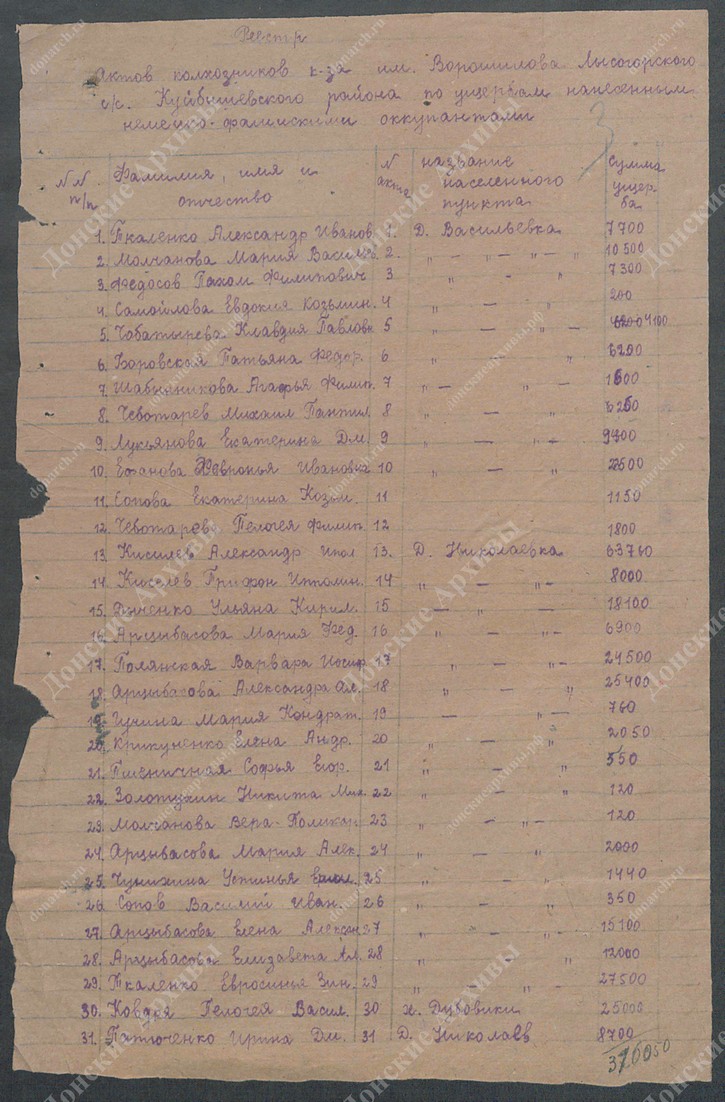 Реестр
Актов колхозников к-за им. Ворошилова Лысогорского
с/с. Куйбышевского района по ущербам нанесенным
немецко-фашискими оккупантами
3
N N п/п Фамилия, имя и отчество N акта название населенного пункта Сумма ущерба
1. Ткаленко Александр Иванов. 1. Д. Васильевка 7700
2. Молчанова Мария Васильев. 2. " — " — " — " 10500
3. Федосов Пахом Филипович 3 " — " 7300
4. Самойлова Евдокия Козьмин. 4 " — " 200
5. Клавдия Павловн 5 " — " 4100
6. Боровская Татьяна Федор. 6 " — " 6200
7. Шабынникова Агафья Филип. 7 " — "
8. Чеботарев Михаил Пантил 8 " — "
9. Лукьянова Екатерина Дм. 9 " — "
10. Ефанова Хавронья Ивановна 10 " — "
11. Сопова Екатерина Козьм. 11 1150
12. Чеботарева Пелогея Филип. 12 1800
13. Кисилев Александр Ипол 13. Д. Николаевка 63760
14. Киселев ТрифонИпполин. 14 " — " 8000
15. Ульяна Кирил. 15 — " — " 18100
16. Арцыбасова Мария Фед. 16 " — " 6900
17. Полянская Варвара Иосиф 17 " — " 24500
18. Арцыбасова Александра Ал. 18 " — " 25400
19. Мария Кондрат. 19 — " — " 760
20. Крикуненко Елена Андр. 20 " — " 2050
21. Пшеничная Софья Егор. 21 " — " 350
22. Золотухин Никита Мих 22 " — " 120
23. Молчанова Вера Поликар 23 " — " 120
24. Арцыбасова Мария Алек. 24 " — " 2000
25. Устинья 25 " — " 1440
26. Сопов Василий Иван. 26 " — " 350
27. Арцыбасова Елена Алексан 27 " — " 15100
28. Арцыбасова Елизавета Ал. 28 " — " 12000
29. Ткаленко Евросинья Зин. 29 " — " 27500
30. Коваля Пелогея Васил. 30 х. Дубовики 25000
31. Патюченко Ирина Дм. 31 Д. Николаев 8700
Донские Архивы
donarch.ru
донскиеархивы.рф